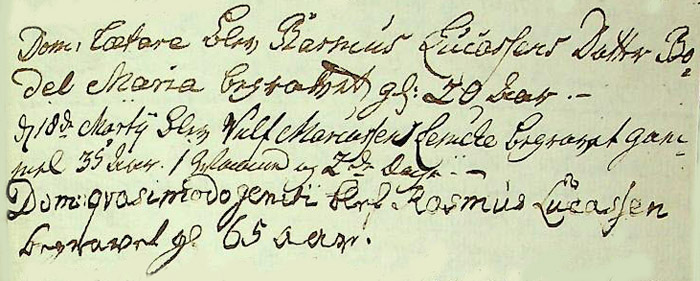 Dom: Lætare blev Rasmus Lucassens Datter Bo-
del Maria begravet gl: 20 Aar. -
d 18de Martij blev Vulf Marcussens begravet gam-
mel 35 Aar. 1 og 2de Dage. -
Dom: qvasimodogeniti blef Rasmus Lucassen
begravet gl 65 aar.